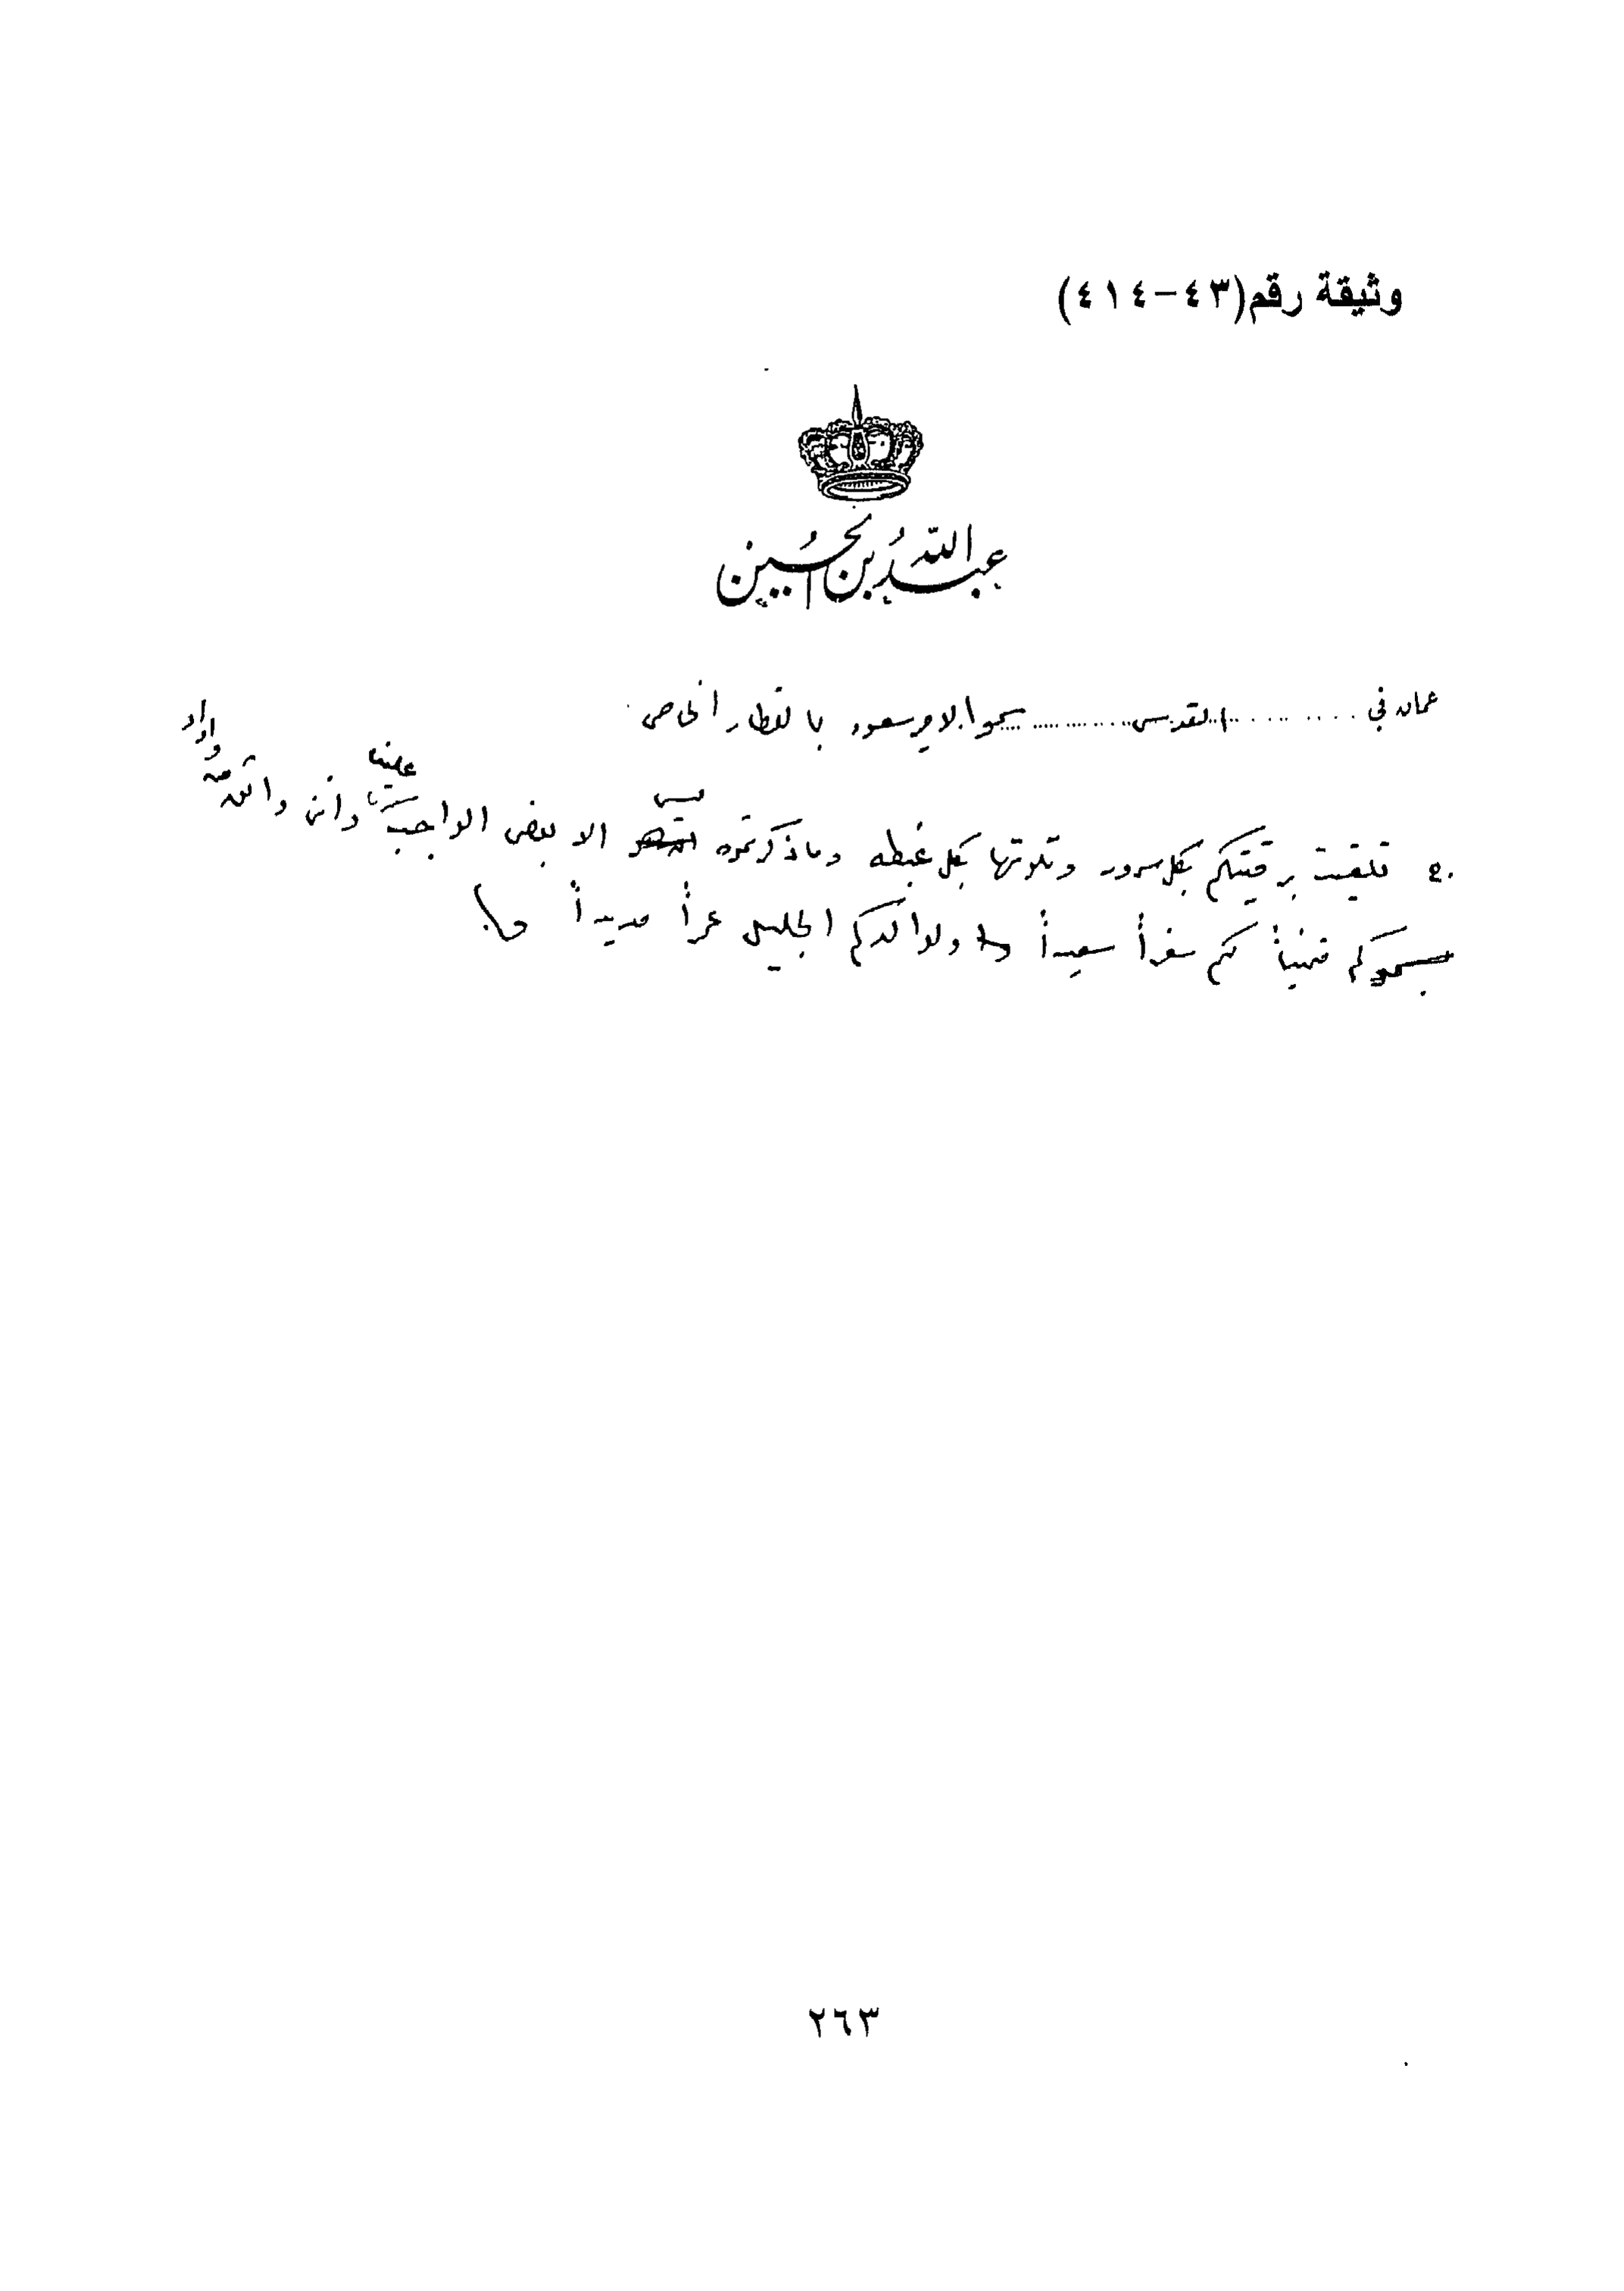 وثيقة رقم(٤٣-٤١٤)
عبد الله بن الحسين
عمان في ............ القدس ............ سمو الامير سعود بالقطار الخاص
ج. تلقيت برقيتكم بكل سرور وتلوتها بكل غبطه وماذكرتموه ليس الا بعض الواجب علينا وانى واثق من وداد
بسموكم متمنياً لكم سفراً سعيداً ولوالدكم الجليل عمراً مديداً
٢٦٣